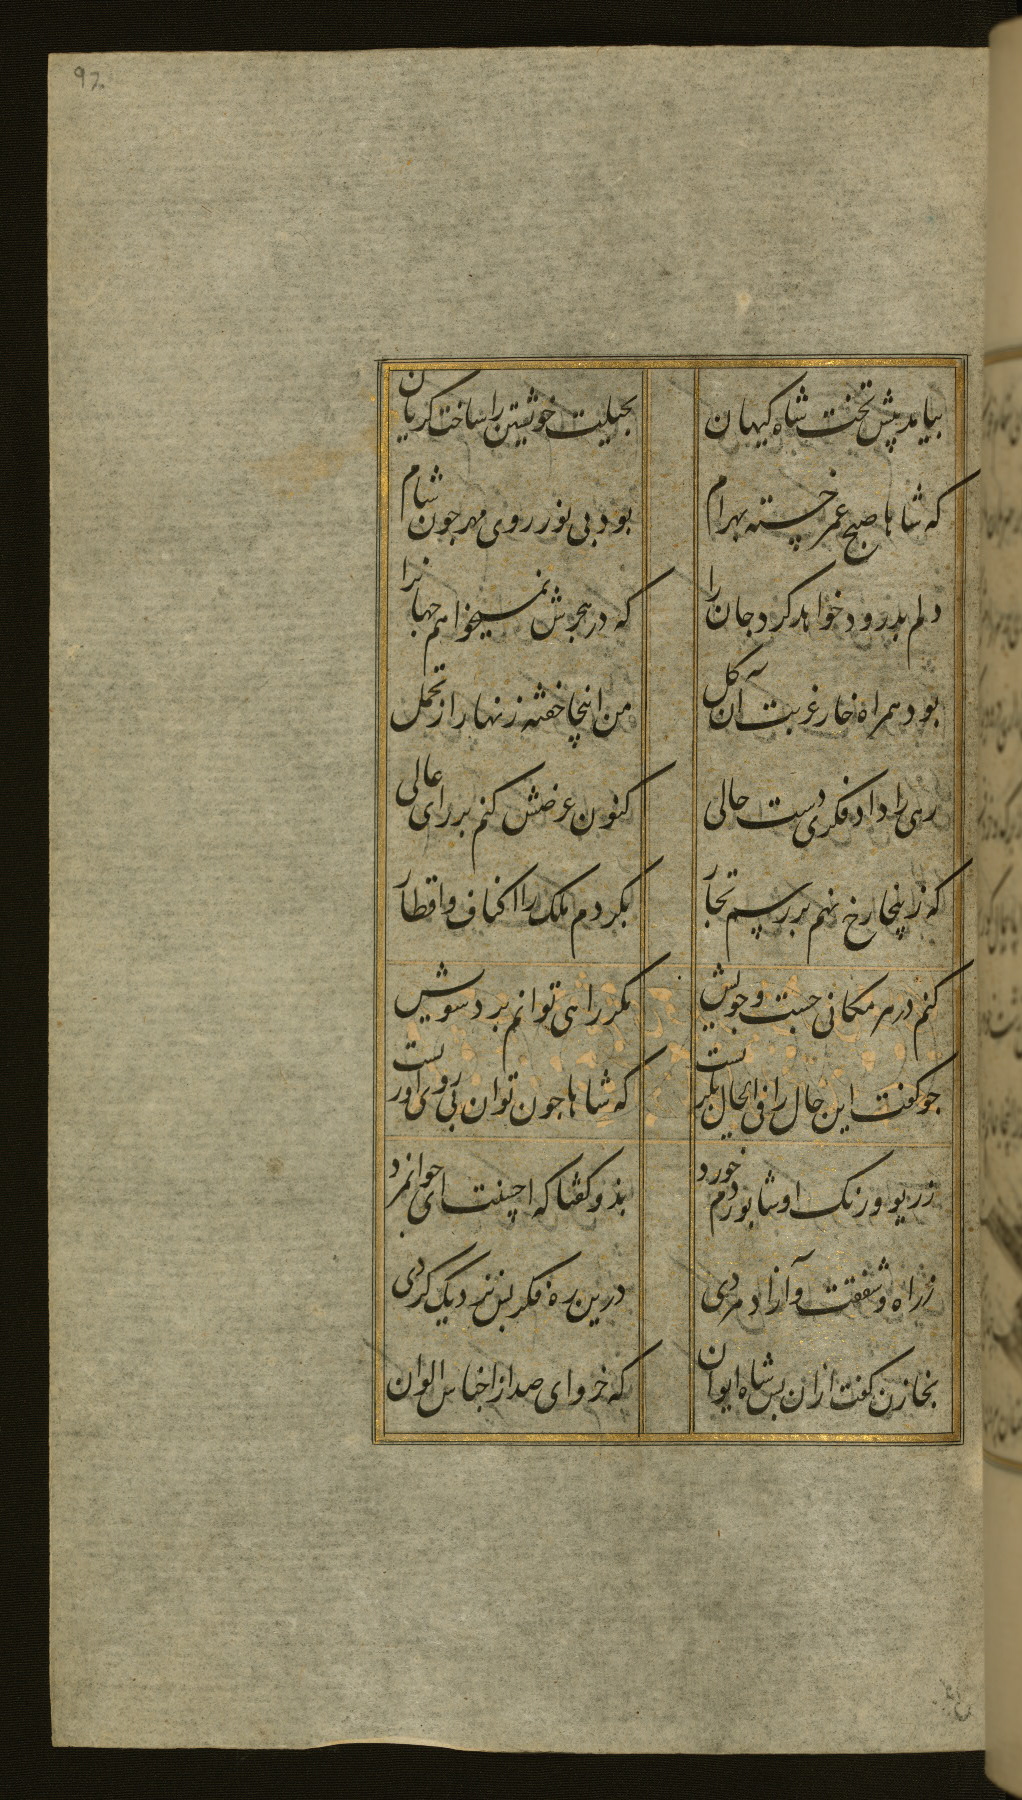 97
بیامد پیش تخت شاه کیهان
بحیلت خویشتن را ساخت کریان
که شاها صبح عمر خسته بهرام
بود بی نور روی مهر جون شام
دلم بدرود خواهد کرد جان را
که در هجرش نمیخواهم جهانرا
بود همراه خار غربت آن کل
من اینجا خفته زنهار از تحمل
رهی را داد فکری دست حالی
کنون عرضش کنم بر رای عالی
که زاینجا رخ نهم بر رسم تجار
بکردم ملک را اکناف واقطار
کنم در هر مکانی جست وجویش
مکر راهی توانم برد سویش
جو کفت این حال را فی الحال بکریست
که شاها جون توان بی روی او زیست
زریو ورنک او شابور دم خورد
بدو کفتا که احسنت ای جوانمرد
زراه شفقت وآزاد مردی
درین ره فکر بس نزدیک کردی
بخازن کفت ازان بس شاه ایوان
که خرواری صد از اجناس الوان